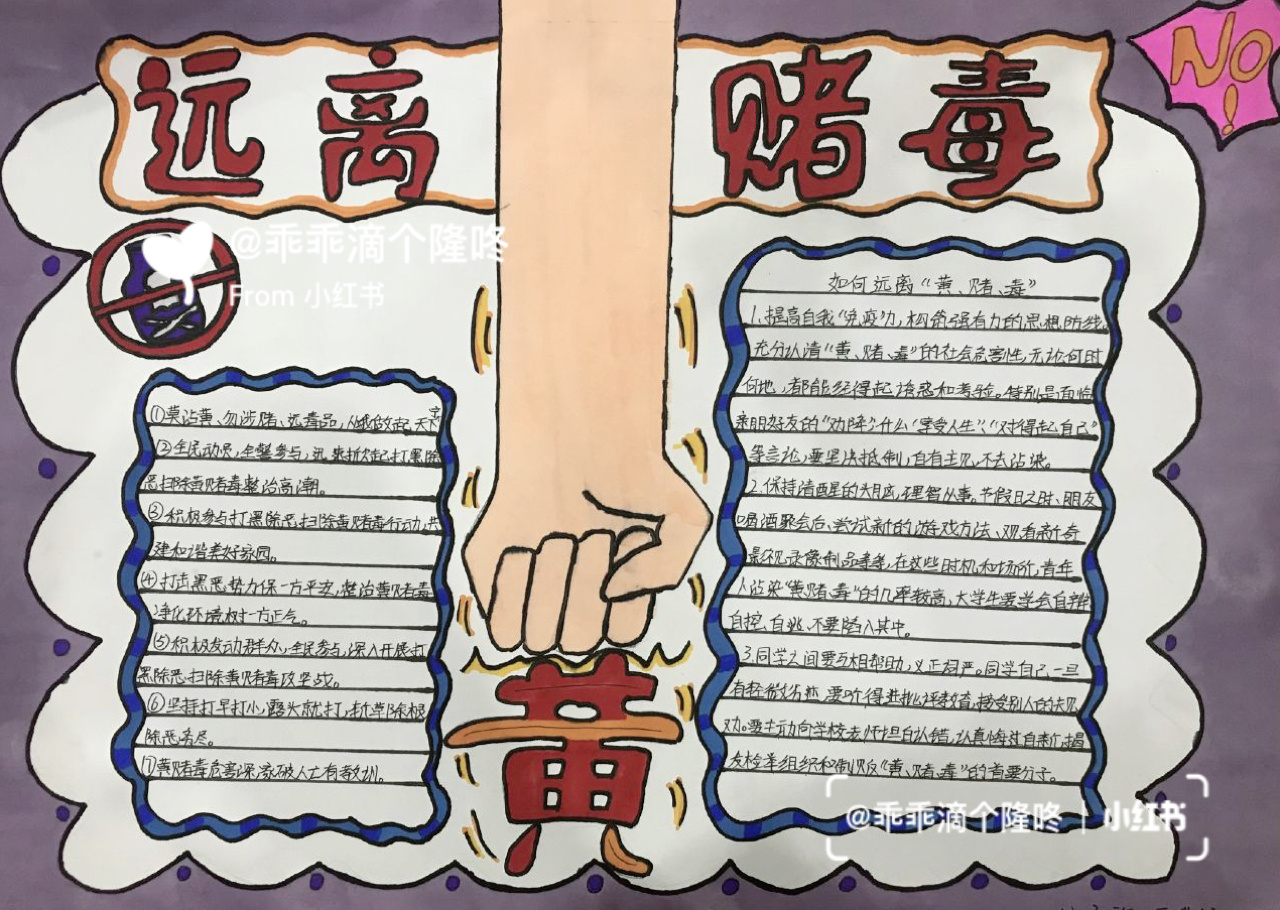 远离 赌毒
NO!
@乖乖滴个隆咚
From 小红书
①莫沾黄、勿涉赌、远毒品，从我做起,天下
②全民动员,全警参与,迅速掀起打黑除
恶扫除黄赌毒整治高潮。
③积极参与打黑除恶,扫除黄赌毒行动,共
建和谐美好家园。
④打击黑恶势力保一方平安,整治黄赌毒
净化环境树一方正气。
⑤积极发动群众,全民参与,深入开展打
黑除恶,扫除黄赌毒攻坚战。
⑥坚持打早打小,露头就打,斩草除根
除恶务尽。
⑦黄赌毒危害深,家破人亡有教训。
黄
如何远离“黄、赌、毒”
1.提高自我“免疫”力,构筑强有力的思想防线,
充分认清“黄、赌、毒”的社会危害性,无论何时
何地,都能经得起诱惑和考验。特别是面临
亲朋好友的“劝降”,什么“享受人生”、“对得起自己”
等言论,要坚决抵制,自有主见,不去沾染。
2.保持清醒的头脑,理智从事。节假日之时、朋友
喝酒聚会后、尝试新的游戏方法、观看新奇
影视录像制品等等,在这些时机和场所,青年
人沾染“黄赌毒”的几率较高,大学生要学会自辨
自控、自逃、不要陷入其中。
3.同学之间要互相帮助,义正词严。同学自己一旦
有轻微劣迹,要听得进批评教育,接受别人的规
劝。要主动向学校老师坦白认错,认真悔过自新,揭
发检举组织和制贩“黄、赌、毒”的首要分子。
@乖乖滴个隆咚 | 小红书